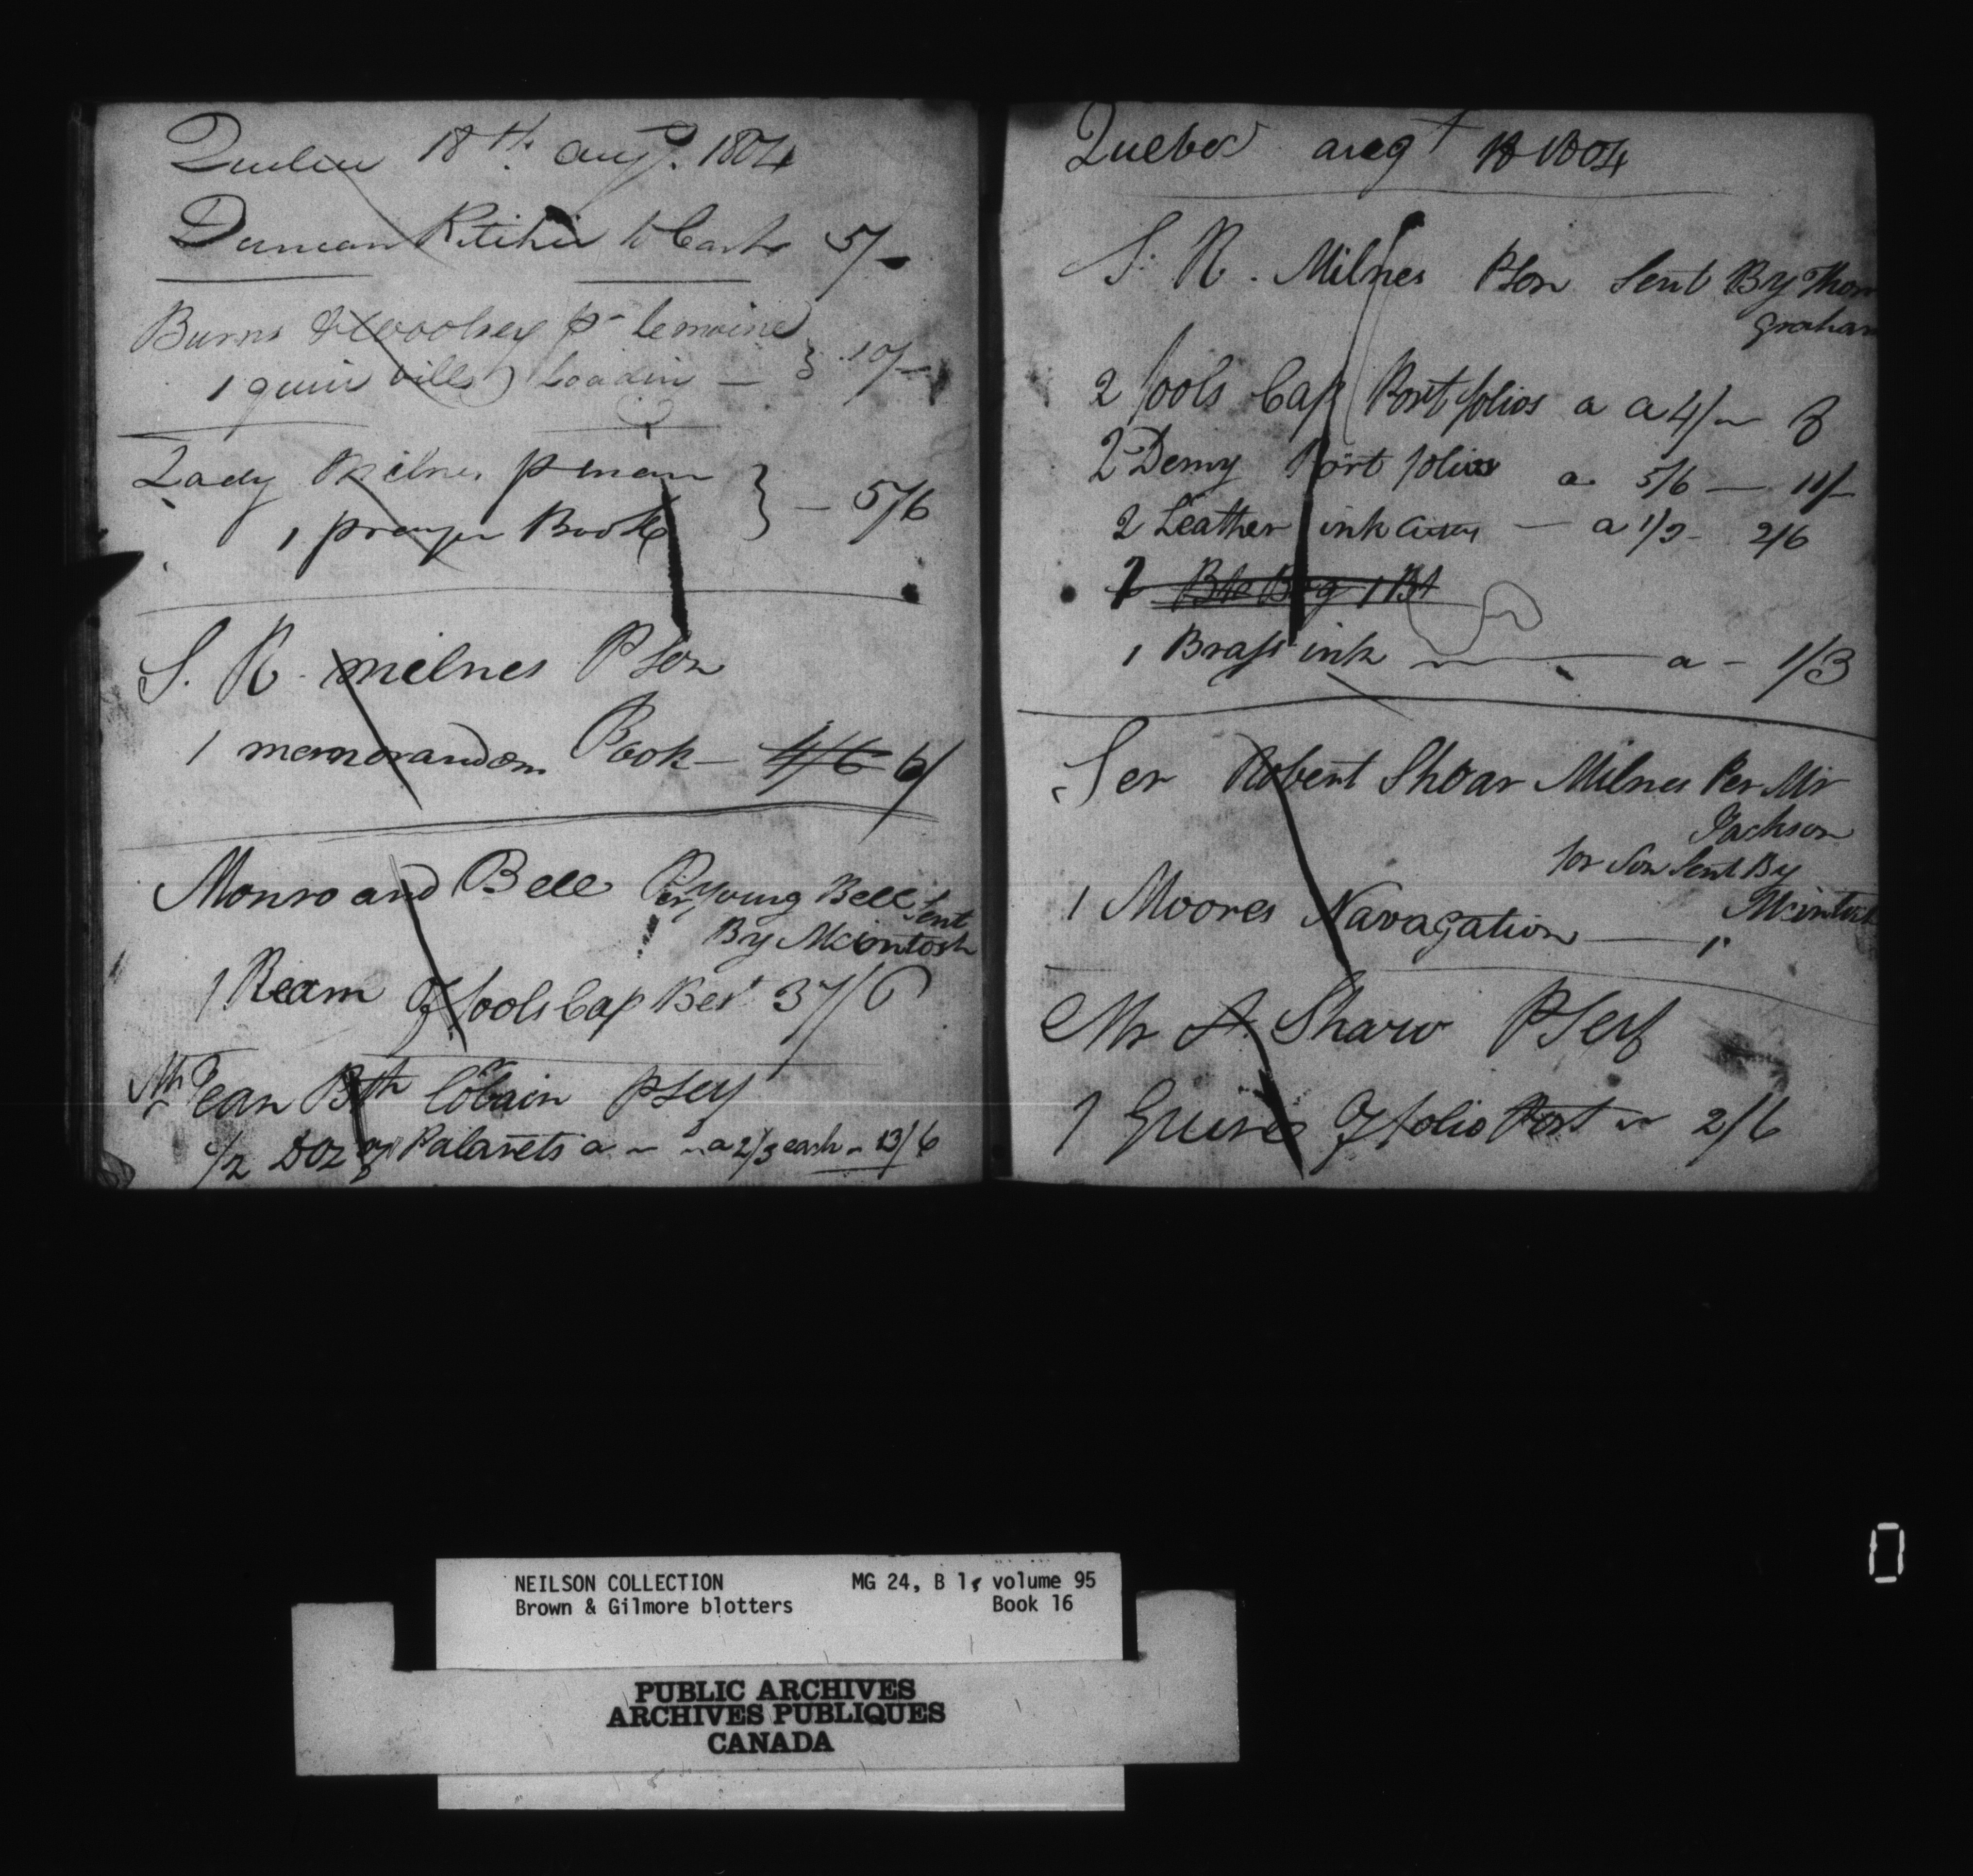 Quebec 18th augt. 1804
Duncan Ritchie to Cash 5/-
Burns & Woolsey pr Lemoine
1 quire bills Loadin — } 10/-
Lady Milnes p man
1 prayer Book } — 5/6
S. R. milnes P Son
1 memorandom Book — 4/6 6/
Monro and Bell Per young Bell Sent
By Mcintosh
1 Ream Of fools Cap Best 37/6
Mr Jean Bth Cobain PSelf
1/2 Doz of Palarets a — a 2/3 each - 13/6
Quebec augt 18 1804
S. R. Milnes PSon Sent By Thom
Graham
2 fools Cap Port folios a a 4/- 8
2 Demy Port folios a 5/6 — 11/-
2 Leather ink — a 1/3 - 2/6
1 Brass ink — a - 1/3
Ser Robert Shoar Milnes Per Mr
Jackson
for Son Sent By
Mcintosh
1 Moores Navagation —
Mr A. Shaw PSelf
1 Quire Of folio Post 2/6
NEILSON COLLECTION MG 24, B 1, volume 95
Brown & Gilmore blotters Book 16
PUBLIC ARCHIVES
ARCHIVES PUBLIQUES
CANADA
0